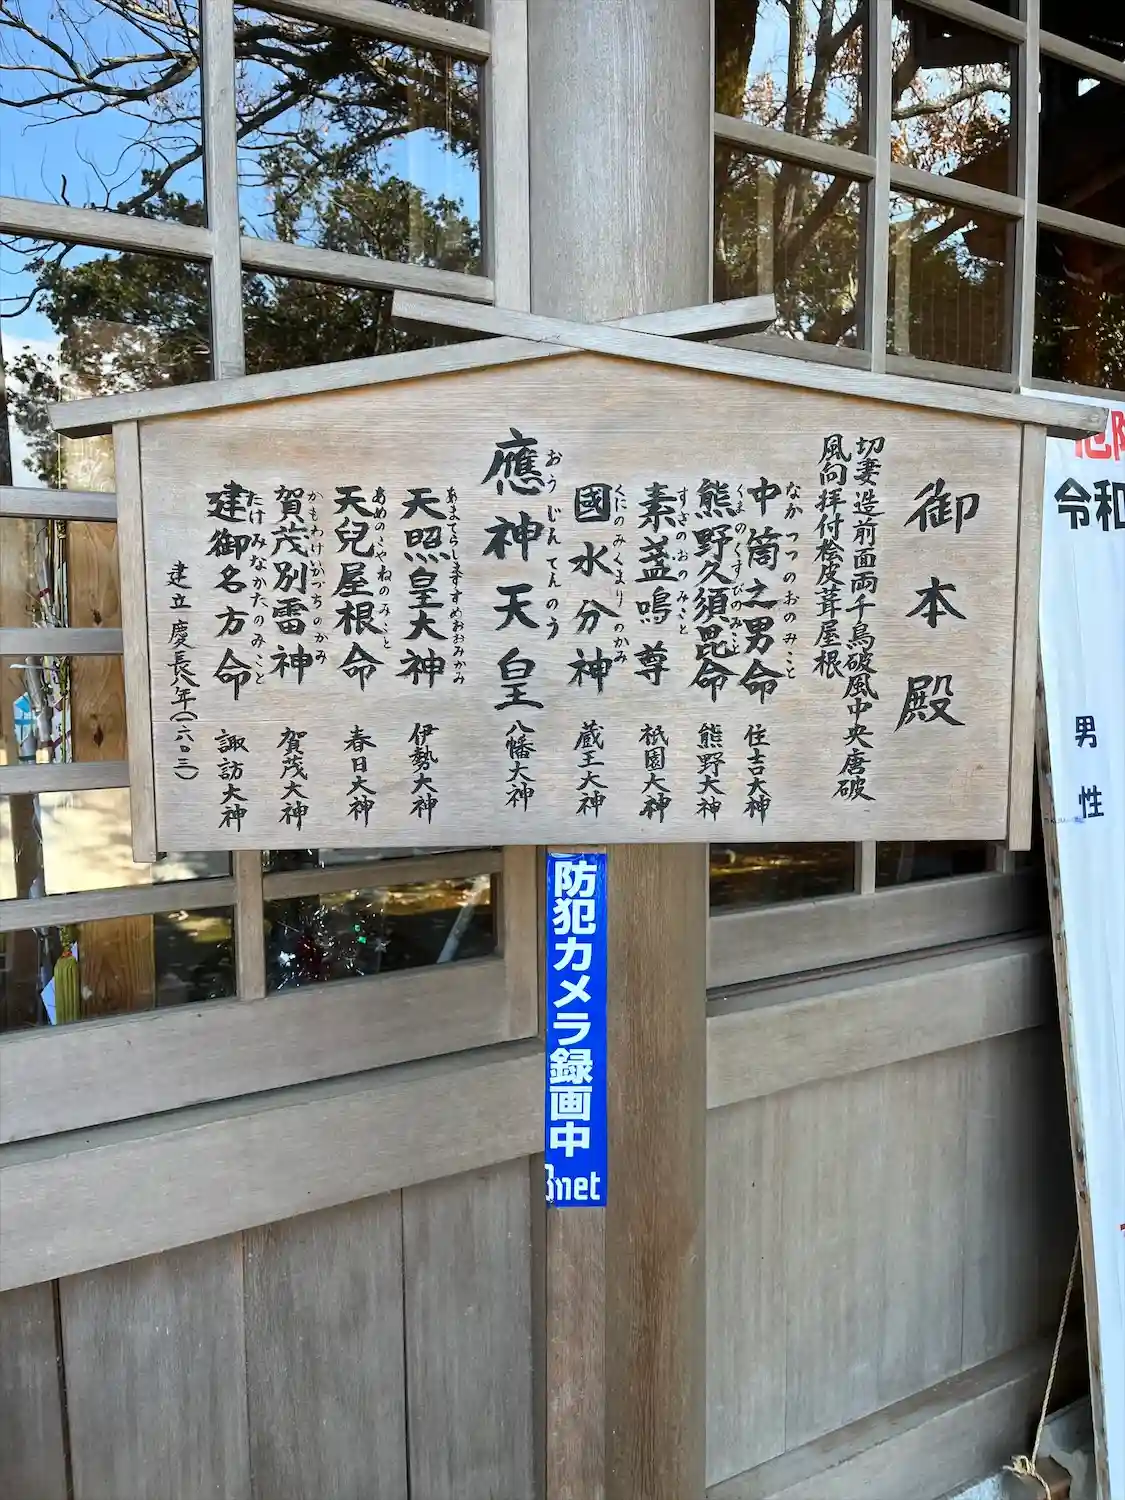 御本殿
切妻造前面両千鳥破風中央唐破
風向拝付桧皮葺屋根
中筒之男命 住吉大神
なかつつのおのみこと
熊野久須毘命 熊野大神
くまのくすびのみこと
素盞嗚尊 祇園大神
すさのおのみこと
國水分神 蔵王大神
くにのみくまりのかみ
應神天皇 八幡大神
おうじんてんのう
天照皇大神 伊勢大神
あまてらしますすめおおみかみ
天兒屋根命 春日大神
あめのこやねのみこと
賀茂別雷神 賀茂大神
かもわけいかづちのかみ
建御名方命 諏訪大神
たけみなかたのみこと
建立 慶長八年(一六〇三)
防犯カメラ録画中
net
令和
男性